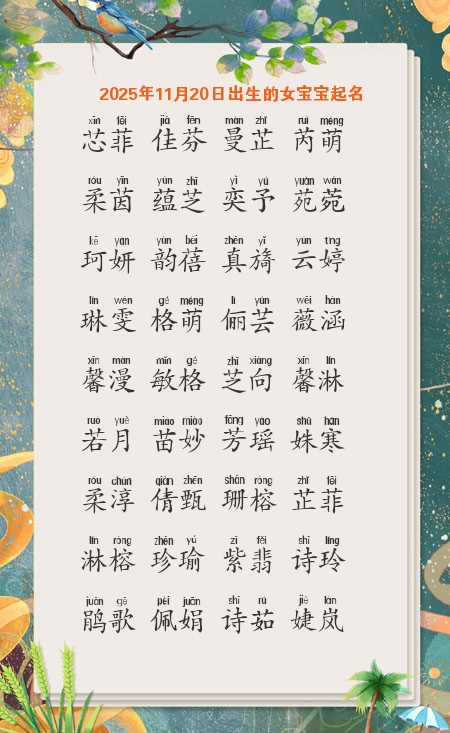 2025年11月20日出生的女宝宝起名
xīn fēi jiā fēn màn zhǐ ruì méng
芯菲 佳芬 曼芷 芮萌
róu yīn yùn zhī yì yú yuàn wǎn
柔茵 蕴芝 奕予 苑菀
kē yán yùn bèi zhēn yǐ yún tíng
珂妍 韵蓓 真旖 云婷
lín wén gé méng lì yún wēi hán
琳雯 格萌 俪芸 薇涵
xīn màn mǐn gé zhī xiàng xīn lín
馨漫 敏格 芝向 馨淋
ruò yuè miáo miào fāng yáo shū hán
若月 苗妙 芳瑶 姝寒
róu chún qiàn zhēn shān róng zhǐ fēi
柔淳 倩甄 珊榕 芷菲
lín róng zhēn yú zǐ fěi shī líng
淋榕 珍瑜 紫翡 诗玲
juān gē pèi juān shī rú jié lán
鹃歌 佩娟 诗茹 婕岚